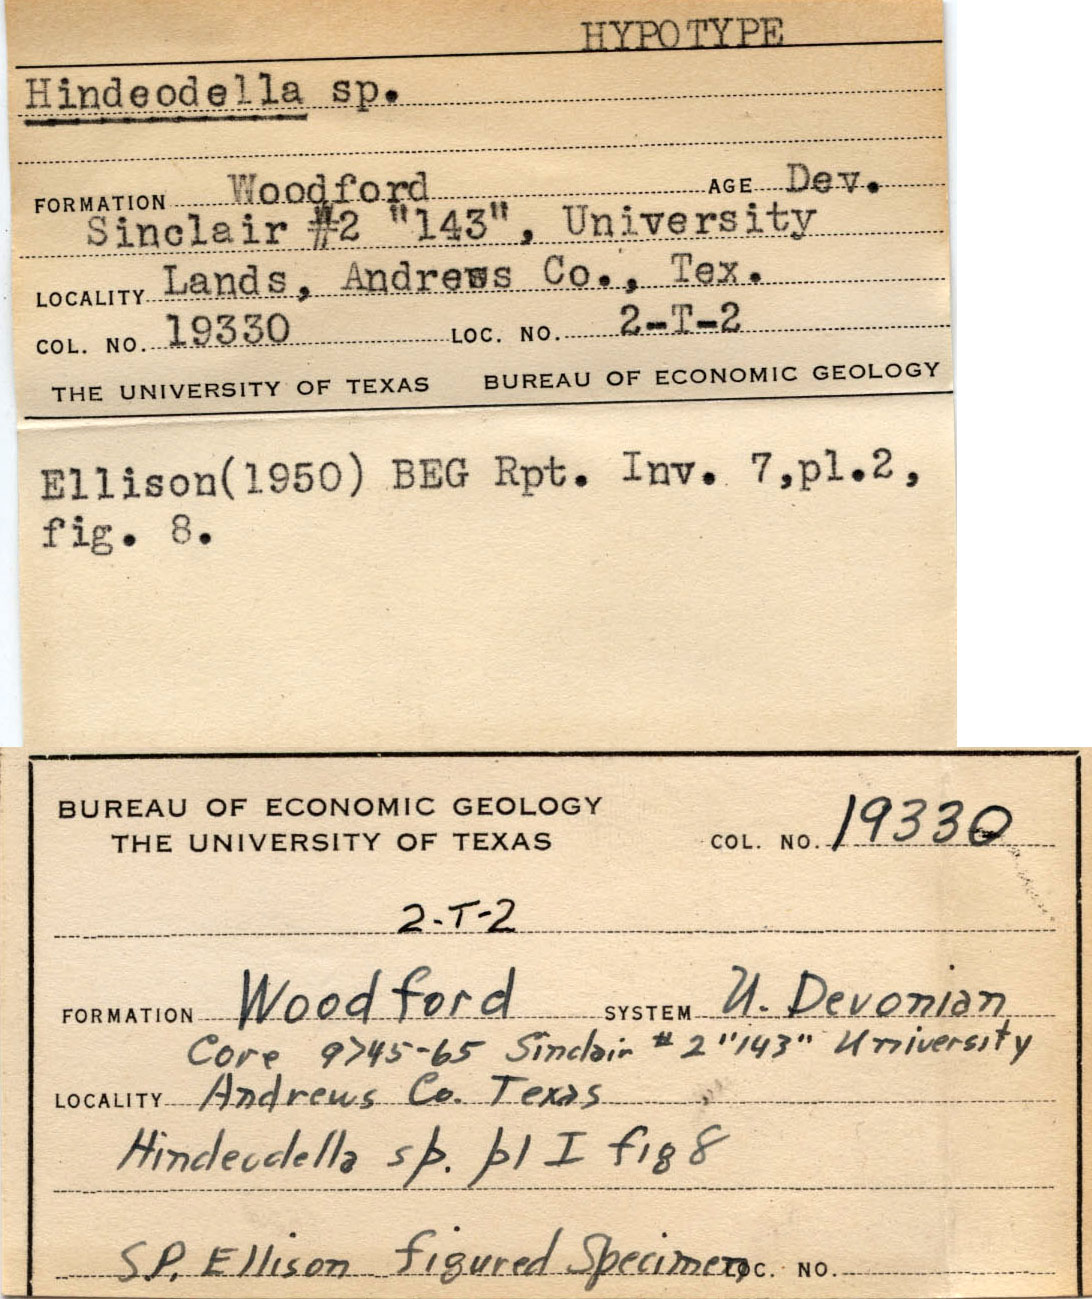 HYPOTYPE
Hindeodella sp.
FORMATION Woodford AGE Dev.
Sinclair #2 "143", University
LOCALITY Lands, Andrews Co., Tex.
COL. NO. 19330 LOC. NO. 2-T-2
THE UNIVERSITY OF TEXAS BUREAU OF ECONOMIC GEOLOGY
Ellison(1950) BEG Rpt. Inv. 7,pl.2,
fig. 8.
BUREAU OF ECONOMIC GEOLOGY
THE UNIVERSITY OF TEXAS COL. NO. 19330
2-T-2
FORMATION Woodford SYSTEM U. Devonian
Core 9745-65 Sinclair #2 "143" University
LOCALITY Andrews Co. Texas
Hindeodella sp. pl I fig 8
S.P. Ellison figured Specimen LOC. NO.